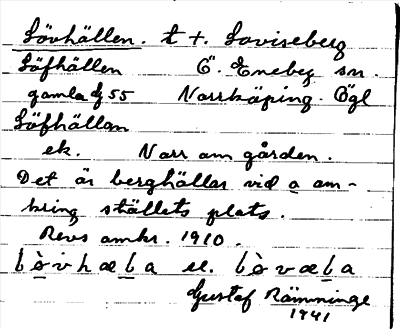 Lövhällen. t +. Loviseberg
Löfhällen Ö. Eneby sn.
gamla 55 Norrköping. Ögl
Löfhällan
ek. Norr om gården.
Det är berghällar vid o om-
kring ställets plats.
Revs omkr. 1910.
Gustaf Rämninge
1941